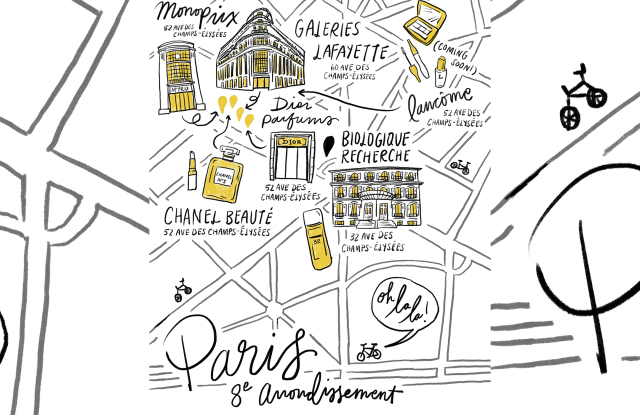 Monoprix
52 AVE DES
CHAMPS-ÉLYSÉES
GALERIES
LAFAYETTE
60 AVE DES
CHAMPS-ÉLYSÉES
(COMING
SOON!)
lancôme
52 AVE DES
CHAMPS-ÉLYSÉES
Dior
parfums
DIOR
52 AVE DES
CHAMPS-ÉLYSÉES
BIOLOGIQUE
RECHERCHE
32 AVE DES
CHAMPS-ÉLYSÉES
CHANEL
CHANEL BEAUTÉ
52 AVE DES CHAMPS-ÉLYSÉES
BR
oh la
la!
Paris
8e Arrondissement